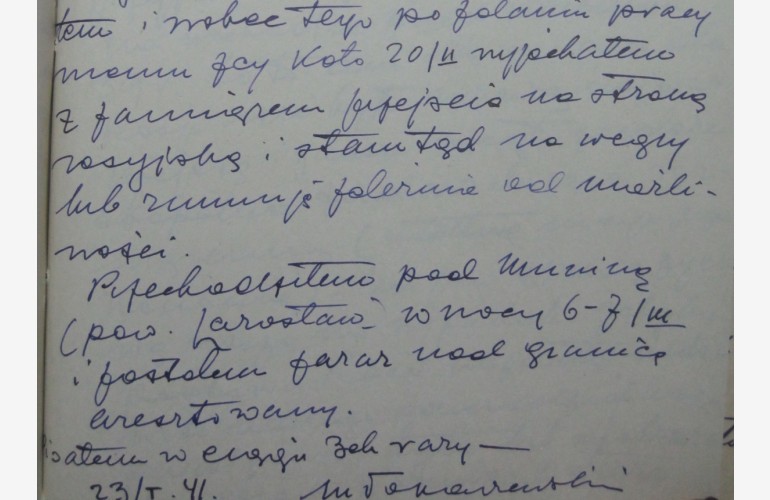 tem i wobec tego po zdaniu pracy
memu zcy Koło 20/II wyjechałem
z zamiarem przejścia na stronę
rosyjską i stamtąd na węgry
lub rumunję zależnie od możli-
ności.
Przechodziłem pod Muniną
(pow. Jarosław) w nocy 6-7/III
i zostałem zaraz nad granicą
aresztowany.
isałem w ciągu 3ch razy —
23/I.41. M Tokarzewski